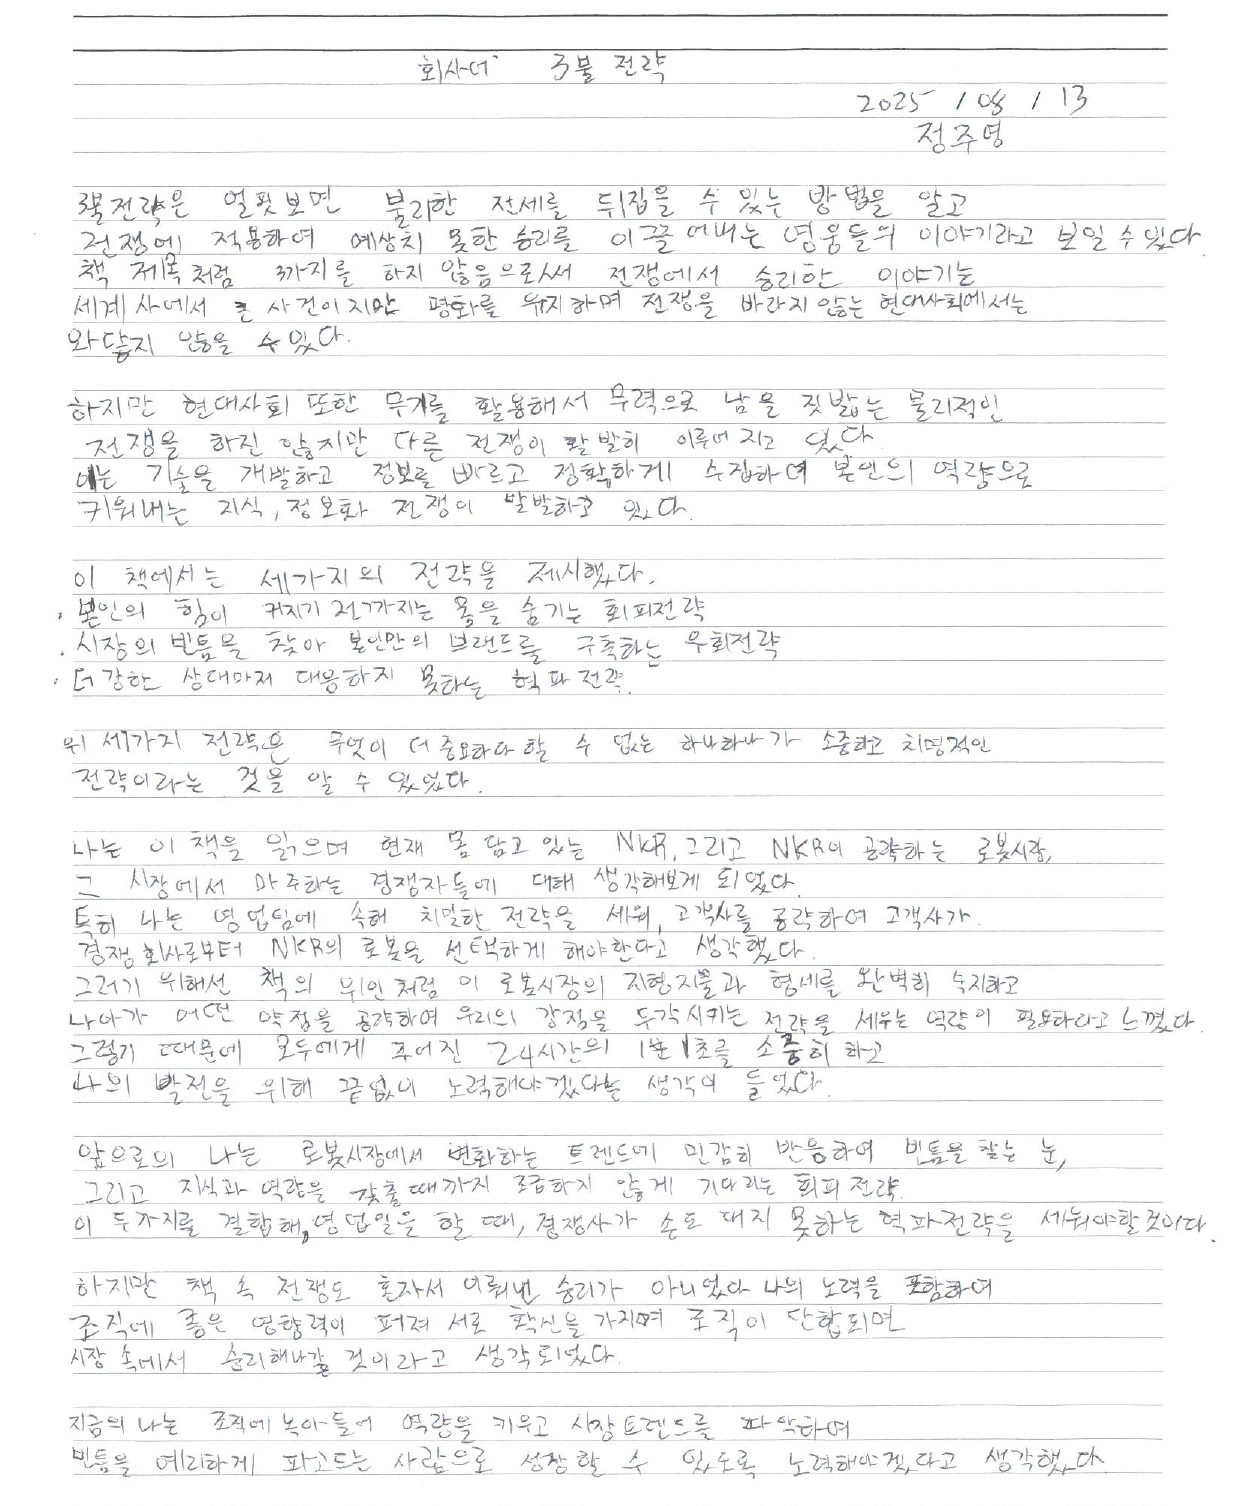 회사어 3불 전략
2025 / 08 / 13
정주영
3불전략은 얼핏보면 불리한 전세를 뒤집을 수 있는 방법을 알고
전쟁에 적용하여 예상치 못한 승리를 이끌어내는 영웅들의 이야기라고 보일 수 있다
책 제목처럼 3가지를 하지 않음으로써 전쟁에서 승리한 이야기는
세계사에서 큰 사건이지만 평화를 유지하며 전쟁을 바라지 않는 현대사회에서는
와닿지 않을 수 있다.
하지만 현대사회 또한 무기를 활용해서 무력으로 남을 짓밟는 물리적인
전쟁을 하진 않지만 다른 전쟁이 활발히 이루어 지고 있다
이는 기술을 개발하고 정보를 빠르고 정확하게 수집하여 본인의 역량으로
키워내는 지식, 정보화 전쟁이 발발하고 있다.
이 책에서는 세가지의 전략을 제시했다.
· 본인의 힘이 커지기 전까지는 몸을 숨기는 회피전략
· 시장의 빈틈을 찾아 본인만의 브랜드를 구축하는 우회전략
· 더 강한 상대마저 대응하지 못하는 혁파 전략.
위 세가지 전략은 무엇이 더 중요하다 할 수 없는 하나하나가 소중하고 치명적인
전략이라는 것을 알 수 있었다.
나는 이 책을 읽으며 현재 몸 담고 있는 NKR, 그리고 NKR이 공략하는 로봇시장,
그 시장에서 마주하는 경쟁자들에 대해 생각해보게 되었다.
특히 나는 영업팀에 속해 치밀한 전략을 세워, 고객사를 공략하여 고객사가
경쟁 회사로부터 NKR의 로봇을 선택하게 해야한다고 생각했다.
그러기 위해선 책의 위인처럼 이 로봇시장의 지형지물과 형세를 완벽히 숙지하고
나아가 어떤 약점을 공략하여 우리의 강점을 두각시키는 전략을 세우는 역량이 필요하다고 느꼈다.
그렇기 때문에 모두에게 주어진 24시간의 1분 1초를 소중히 하고
나의 발전을 위해 끝없이 노력해야겠다는 생각이 들었다.
앞으로의 나는 로봇시장에서 변화하는 트렌드에 민감히 반응하여 빈틈을 찾는 눈,
그리고 지식과 역량을 갖출 때까지 조급하지 않게 기다리는 회피 전략.
이 두가지를 결합해, 영업일을 할 때, 경쟁사가 손도 대지 못하는 혁파전략을 세워야할것이다.
하지만 책 속 전쟁도 혼자서 이뤄낸 승리가 아니었다 나의 노력을 포함하여
조직에 좋은 영향력이 퍼져 서로 확신을 가지며 조직이 단합되면
시장 속에서 승리해나갈 것이라고 생각되었다.
지금의 나는 조직에 녹아들어 역량을 키우고 시장트렌드를 파악하여
빈틈을 예리하게 파고드는 사람으로 성장할 수 있도록 노력해야겠다고 생각했다.